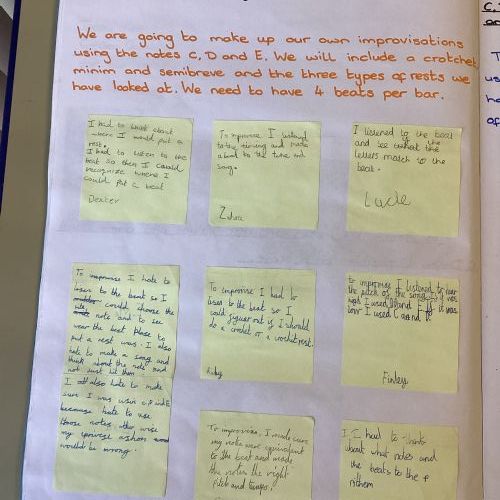 We are going to make up our own improvisations
using the notes C, D and E. We will include a crotchet,
minim and semibreve and the three types of rests we
have looked at. We need to have 4 beats per bar.
I had to think about
where I would put a
rest.
I had to listen to the
beat so then I could
recognize where I
could put a beat
Dexter
To improvise I listened
to the timing and made
a beat to the tune and
song.
I listened to the beat
and see what the
letters match to the
beat.
To improvise I hate to
lisen to the beat so I
could choose the
note and to see
wear the best place to
put a rest was. I also
hate to make a song and
think about the note and
not just hit them
I also hate to make
sure I was usin c, D and E
because hate to use
those notes other wise
my
would be wrong.
To improvise I had to
lisen to the beat so I
could figuer out if I should
do a crochet or a crochet rest.
Riley
to improvise I listened to
the pitch of the song if it was
high I used and E if it was
low I used C and D
Finley
To improvise, I made sure
my notes were equivalent
to the beat and made
the notes the right
pitch and tempo.
I had to think
about what notes and
the beats to the
rithem